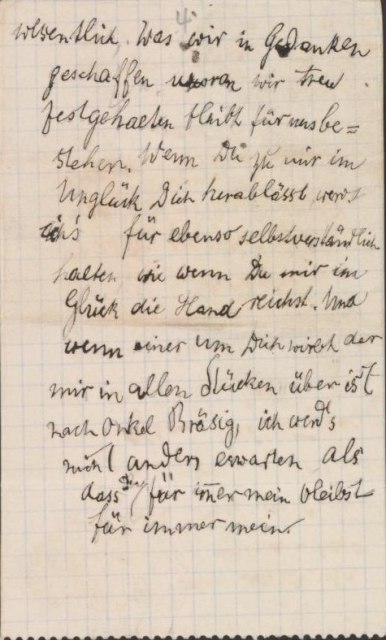 4
wesentlich. Was wir in Gedanken
geschaffen woran wir treu
festgehalten bleibt für uns be=
stehen. Wenn Du zu mir im
Unglück Dich herablässt, werd
ich's für ebenso selbstverständlich
halten, wie wenn Du mir im
Glück die Hand reichst. Und
wenn einer um Dich wirbt der
mir in allen Stücken über ist
nach Onkel Bräsig, ich werd's
nicht anders erwarten als
dass Du für immer mein bleibst
für immer mein.